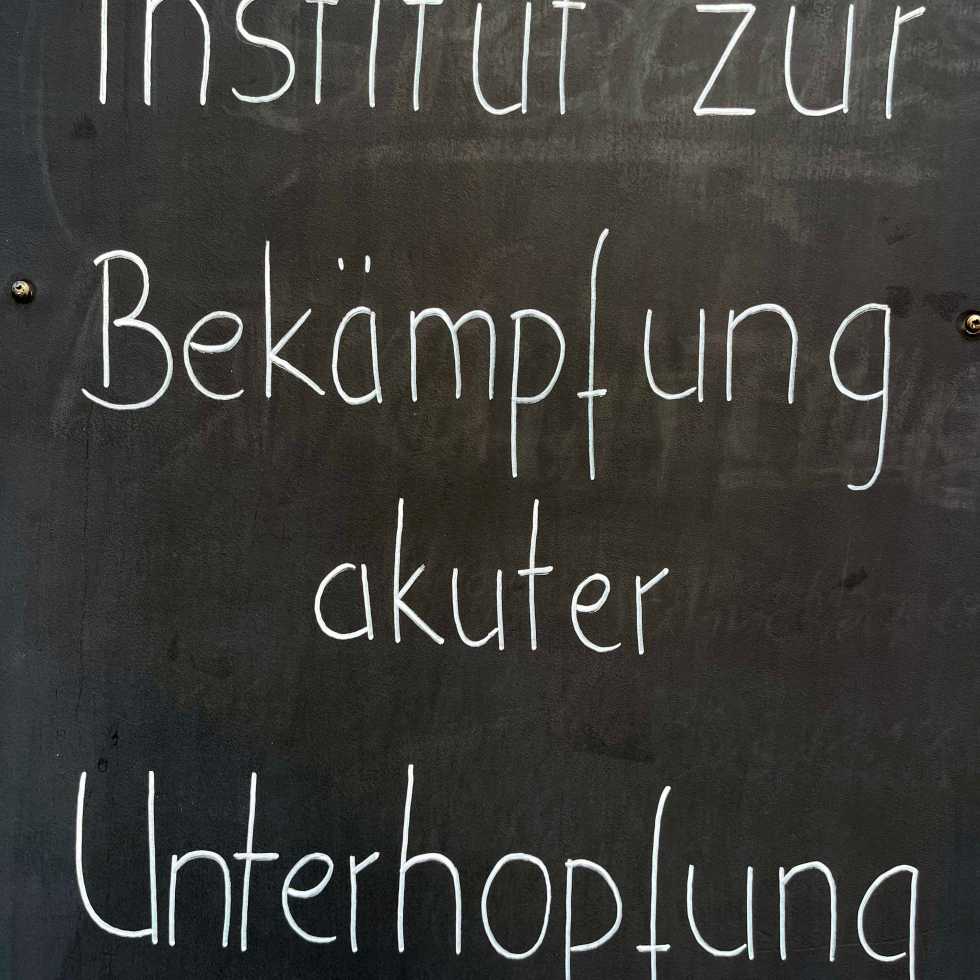 Institut zur
Bekämpfung
akuter
Unterhopfung